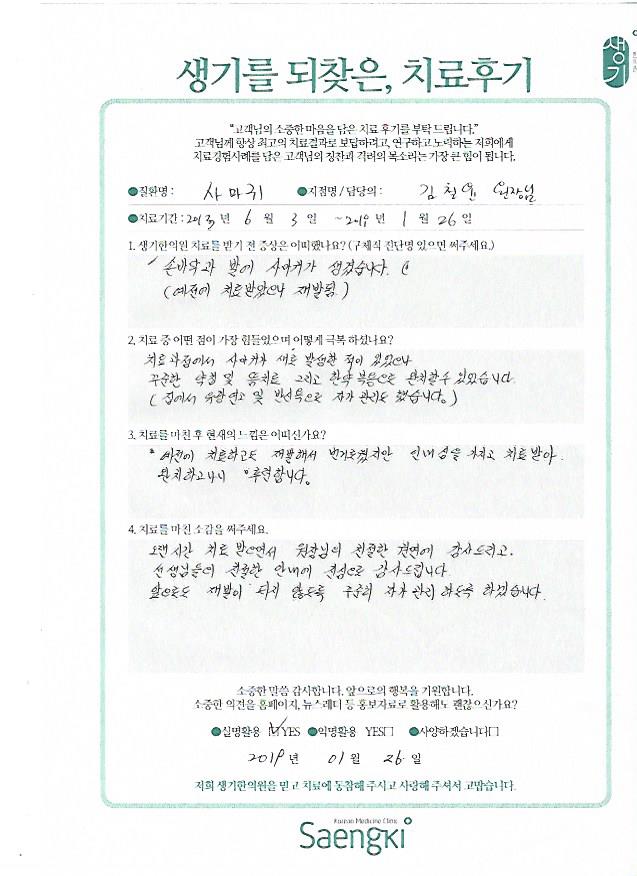 생기
생기를 되찾은, 치료후기
"고객님의 소중한 마음을 담은 치료 후기를 부탁 드립니다."
고객님께 항상 최고의 치료결과로 보답하려고, 연구하고 노력하는 저희에게
치료경험사례를 담은 고객님의 칭찬과 격려의 목소리는 가장 큰 힘이 됩니다.
●질환명 : 사마귀 ●지점명 / 담당의 : 김철윤 원장님
●치료기간 : 2013 년 6 월 3 일 ~ 2019 년 1 월 26 일
1. 생기한의원 치료를 받기 전 증상은 어떠했나요? (구체적 진단명 있으면 써주세요.)
손바닥과 발에 사마귀가 생겼습니다.
(예전에 치료받았으나 재발됨)
2. 치료 중 어떤 점이 가장 힘들었으며 어떻게 극복 하셨나요?
치료과정에서 사마귀가 새로 발생한 적이 있었으나
꾸준한 약침 및 뜸치료 그리고 한약 복용으로 완치할수 있었습니다.
(집에서 연고 및 반신욕으로 자가 관리도 했습니다.)
3. 치료를 마친 후 현재의 느낌은 어떠신가요?
예전에 치료하고도 재발해서 번거로웠지만 인내심을 가지고 치료받아
완치하고나니 후련합니다.
4. 치료를 마친 소감을 써주세요.
오랜시간 치료 받으면서 원장님의 친절한 격면에 감사드리고.
선생님들의 친절한 안내에 진심으로 감사드립니다.
앞으로도 재발이 되지 않도록 꾸준히 자가 관리 하도록 하겠습니다.
소중한 말씀 감사합니다. 앞으로의 행복을 기원합니다.
소중한 의견을 홈페이지, 뉴스레터 등 홍보자료로 활용해도 괜찮으신가요?
●실명활용 ☑YES ●익명활용 YES□ ●사양하겠습니다□
2019 년 01 월 26 일
저희 생기한의원을 믿고 치료에 동참해 주시고 사랑해 주셔서 고맙습니다.
Korean Medicine Clinic
Saengki